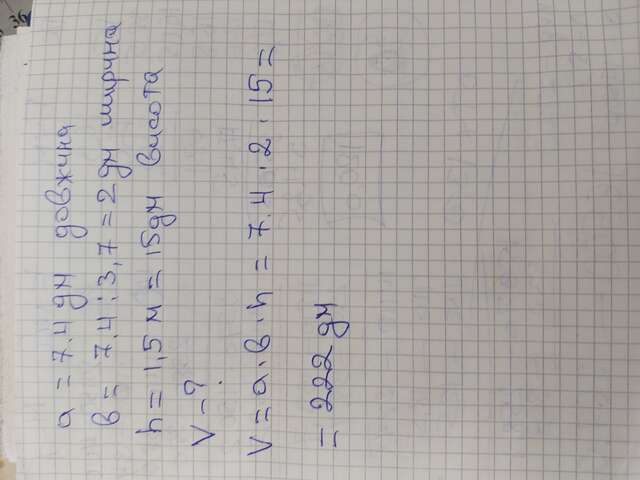 a = 7.4 дм довжина
в = 7.4 : 3,7 = 2 дм ширина
h = 1,5 м = 15 дм висота
V - ?
V = a · в · h = 7.4 · 2 · 15 =
= 222 дм